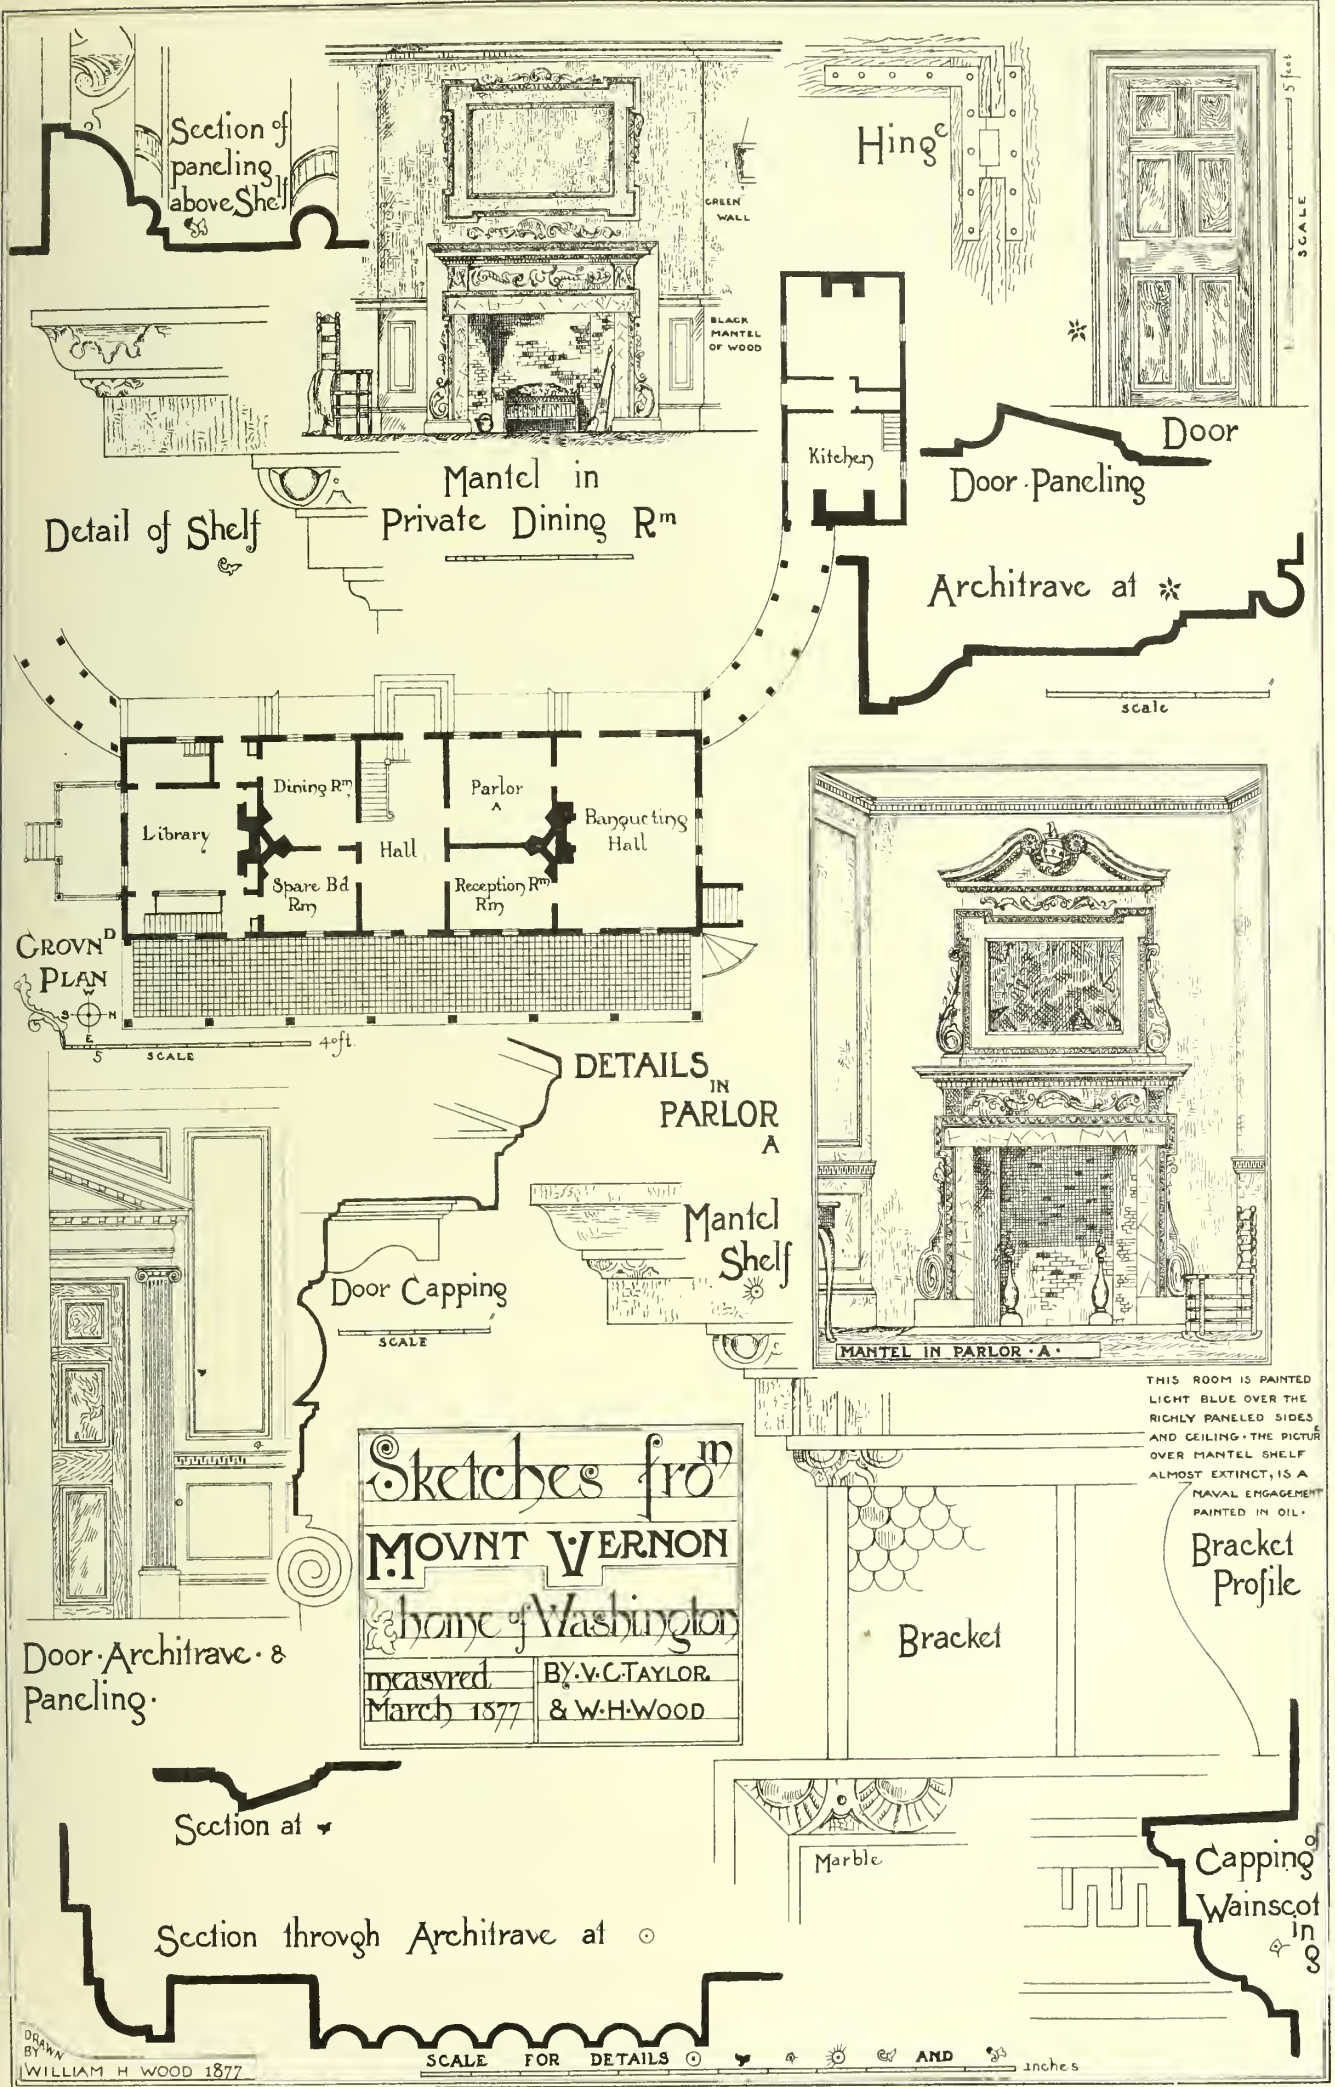 Section of
paneling
above Shelf
GREEN
WALL
BLACK
MANTEL
OF WOOD
Hinge
5 feet
SCALE
Door
Door Paneling
Kitchen
Detail of Shelf
Mantel in
Private Dining Rm
Architrave at
scale
Dining Rm
Parlor
A
Library
Hall
Banqueting
Hall
Spare Bd
Rm
Reception Rm
R'm
GROVND
PLAN
W
S N
E
5 SCALE 40ft.
DETAILS
IN
PARLOR
A
Mantel
Shelf
Door Capping
SCALE
MANTEL IN PARLOR · A ·
THIS ROOM IS PAINTED
LIGHT BLUE OVER THE
RICHLY PANELED SIDES
AND CEILING · THE PICTURE
OVER MANTEL SHELF
ALMOST EXTINCT, IS A
NAVAL ENGAGEMENT
PAINTED IN OIL ·
Bracket
Profile
Bracket
Sketches from
MOVNT VERNON
home of Washington
measvred
March 1877
BY · V. C. TAYLOR
& W · H · WOOD
Door · Architrave · &
Paneling ·
Section at
Marble
Capping of
Wainscot
in
Section throvgh Architrave at
DRAWN
BY
WILLIAM H WOOD 1877
SCALE FOR DETAILS AND inches